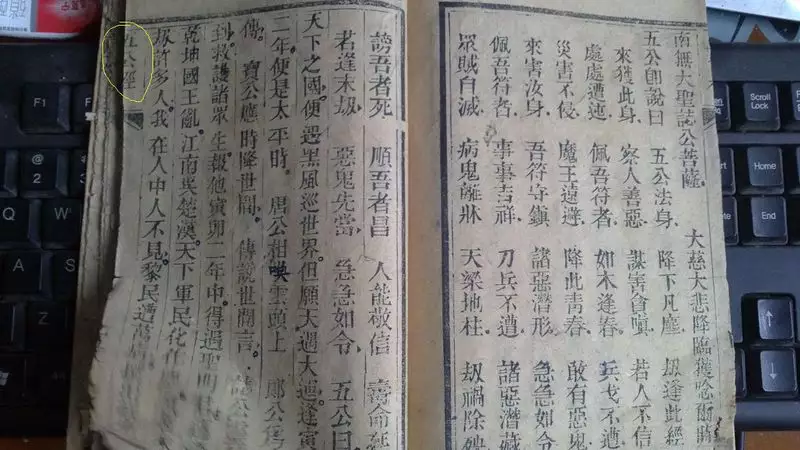 南無大聖誌公菩薩 大慈大悲降臨獲唸
五公即說曰 五公法身 降下凡塵 刼逢此經
來獲此身 察人善惡 謀害貪嗔 若人不信
處處遭迍 佩吾符者 如木逢春 兵戈不遭
災害不侵 魔王遠避 降此青春 敢有惡鬼
來害汝身 吾符守鎮 諸惡潛形 急急如令
佩吾符者 事事吉祥 刀兵不遭 諸惡潛藏
眾賊自滅 病鬼離牀 天梁地柱 刼禍除殃
謗吾者死 順吾者昌 人能敬信 壽命延
若逢末刼 惡鬼先當 急急如令 五公曰
天下之國便遇黑風巡世界但願天過大運逢寅
二年便是太平時 唐公相喚雲頭上 郎公
傳 寶公應時降世間 傳說世間言
到救護諸眾生報他寅卯二年中得過聖明
乾坤國王亂江南吳楚漢天下軍民化作
坂許多人我在人中人不見黎民遭萬
五公經
F1
F2
2
Q
W
A
S
Scroll
Lock
Insert
Home
Delete
End